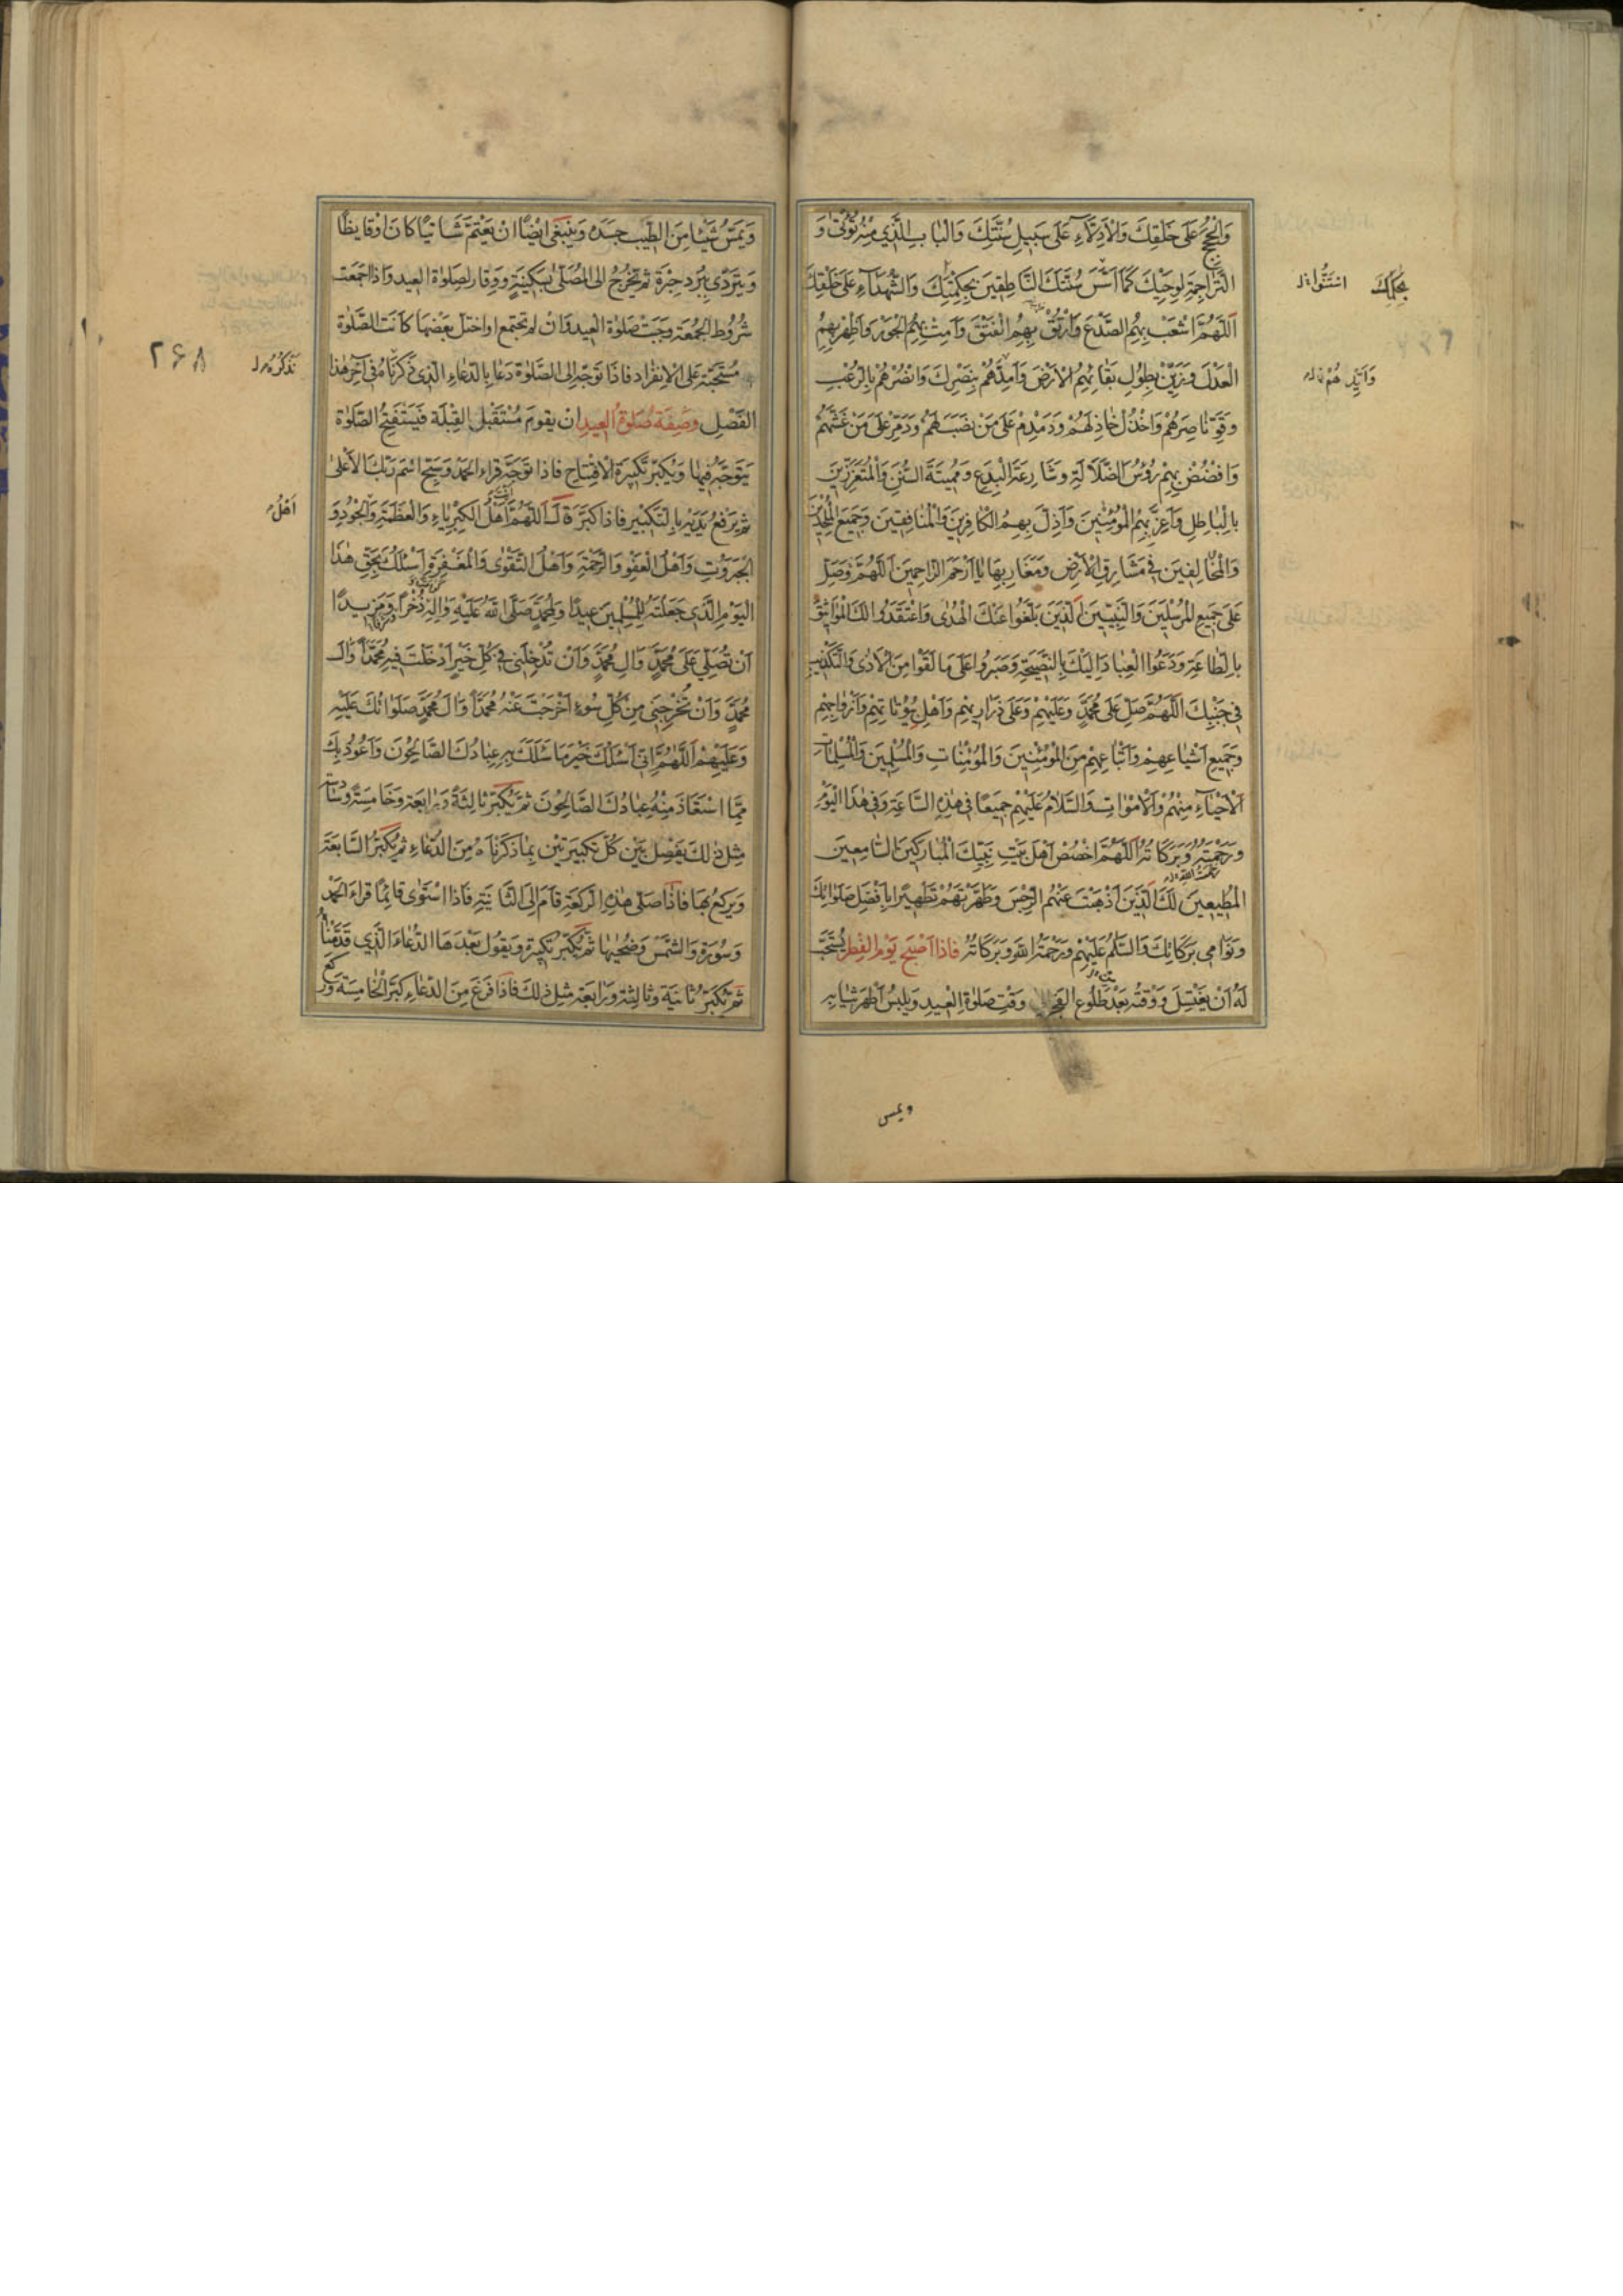 وَالْحُجَجِ عَلَى خَلْقِكَ وَالْاَدِلَّاءِ عَلَى سَبِيلِ سُنَّتِكَ وَالْبَابِ الَّذِي مِنْهُ تُؤْتٰى وَ
التَّرَاجِمَةِ لِوَحْيِكَ كَمَا اَسَّسَ سُنَّتَكَ النَّاطِقِينَ بِحِكْمَتِكَ وَالشُّهَدَآءِ عَلَى خَلْقِكَ
اَللّٰهُمَّ اشْعَبْ بِهِمُ الصَّدْعَ وَارْتُقْ بِهِمُ الْفَتْقَ وَاَمِتْ بِهِمُ الْجَوْرَ وَاَظْهِرْ بِهِمُ
الْعَدْلَ وَزَيِّنْ بِطُولِ بَقَائِهِمُ الْاَرْضَ وَاَمِدَّهُمْ بِنَصْرِكَ وَانْصُرْهُمْ بِالرُّعْبِ
وَقَوِّ نَاصِرَهُمْ وَاخْذُلْ خَاذِلَهُمْ وَدَمْدِمْ عَلَى مَنْ نَصَبَ لَهُمْ وَدَمِّرْ عَلَى مَنْ غَشَّهُمْ
وَافْضُضْ بِهِمْ رُؤُسَ الضَّلَالَةِ وَشَارِعَةَ الْبِدَعِ وَمُمِيتَةَ السُّنَنِ وَالْمُتَعَزِّزِينَ
بِالْبَاطِلِ وَاَعِزَّ بِهِمُ الْمُؤْمِنِينَ وَاَذِلَّ بِهِمُ الْكَافِرِينَ وَالْمُنَافِقِينَ وَجَمِيعَ الْمُلْحِدِينَ
وَالْمُخَالِفِينَ فِي مَشَارِقِ الْاَرْضِ وَمَغَارِبِهَا يَا اَرْحَمَ الرَّاحِمِينَ اَللّٰهُمَّ وَصَلِّ
عَلَى جَمِيعِ الْمُرْسَلِينَ وَالنَّبِيِّينَ الَّذِينَ بَلَّغُوا عَنْكَ الْهُدٰى وَاعْتَقَدُوا لَكَ الْمَوَاثِيقَ
بِالطَّاعَةِ وَدَعَوُا الْعِبَادَ اِلَيْكَ بِالنَّصِيحَةِ وَصَبَرُوا عَلَى مَا لَقُوا مِنَ الْاَذٰى وَالتَّكْذِيبِ
فِي جَنْبِكَ اَللّٰهُمَّ صَلِّ عَلَى مُحَمَّدٍ وَعَلَيْهِمْ وَعَلَى ذَرَارِيهِمْ وَاَهْلِ بُيُوتَاتِهِمْ وَاَزْوَاجِهِمْ
وَجَمِيعِ اَشْيَاعِهِمْ وَاَتْبَاعِهِمْ مِنَ الْمُؤْمِنِينَ وَالْمُؤْمِنَاتِ وَالْمُسْلِمِينَ وَالْمُسْلِمَاتِ
اَلْاَحْيَآءِ مِنْهُمْ وَالْاَمْوَاتِ وَالسَّلَامُ عَلَيْهِمْ جَمِيعًا فِي هٰذِهِ السَّاعَةِ وَفِي هٰذَا الْيَوْمِ
وَرَحْمَتُهُ وَبَرَكَاتُهُ اَللّٰهُمَّ اخْصُصْ اَهْلَ بَيْتِ نَبِيِّكَ الْمُبَارَكِينَ السَّامِعِينَ
الْمُطِيعِينَ لَكَ الَّذِينَ اَذْهَبْتَ عَنْهُمُ الرِّجْسَ وَطَهَّرْتَهُمْ تَطْهِيرًا بِاَفْضَلِ صَلَوَاتِكَ
وَنَوَامِي بَرَكَاتِكَ وَالسَّلَامُ عَلَيْهِمْ وَرَحْمَةُ اللّٰهِ وَبَرَكَاتُهُ فَاِذَا اَصْبَحَ يَوْمَ الْفِطْرِ يُسْتَحَبُّ
لَهُ اَنْ يَغْتَسِلَ وَوَقْتُهُ بَعْدَ طُلُوعِ الْفَجْرِ وَقْتِ صَلٰوةِ الْعِيدِ وَيَلْبَسَ اَطْهَرَ ثِيَابِهِ
بِحُكْمِكَ
وَاَيِّدْهُمْ
ويمس
وَيَمَسُّ شَيْئًا مِنَ الطِّيبِ جَسَدَهُ وَيَنْبَغِي اَيْضًا اَنْ يَعْتَمَّ شَاتِيًا كَانَ اَوْ قَايِظًا
وَيَتَرَدّٰى بِبُرْدِ حِبَرَةٍ ثُمَّ يَخْرُجُ اِلَى الْمُصَلّٰى بِسَكِينَةٍ وَوَقَارٍ لِصَلٰوةِ الْعِيدِ وَاِذَا اجْتَمَعَتْ
شُرُوطُ الْجُمُعَةِ وَجَبَتْ صَلٰوةُ الْعِيدِ وَاِنْ لَمْ تَجْتَمِعْ اَوِ اخْتَلَّ بَعْضُهَا كَانَتِ الصَّلٰوةُ
مُسْتَحَبَّةً عَلَى الْاِنْفِرَادِ فَاِذَا تَوَجَّهَ اِلَى الصَّلٰوةِ دَعَا بِالدُّعَاءِ الَّذِي ذَكَرْنَاهُ فِي آخِرِ هٰذَا
الْفَصْلِ وَصِفَةُ صَلٰوةِ الْعِيدِ اَنْ يَقُومَ مُسْتَقْبِلَ الْقِبْلَةِ فَيَسْتَفْتِحُ الصَّلٰوةَ
يَتَوَجَّهُ فِيهَا وَيُكَبِّرُ تَكْبِيرَةَ الْاِفْتِتَاحِ فَاِذَا تَوَجَّهَ قَرَاَ الْحَمْدَ وَسَبِّحِ اسْمَ رَبِّكَ الْاَعْلٰى
ثُمَّ يَرْفَعُ يَدَيْهِ بِالتَّكْبِيرِ فَاِذَا كَبَّرَ قَالَ اَللّٰهُمَّ اَهْلَ الْكِبْرِيَاءِ وَالْعَظَمَةِ وَالْجُودِ وَ
الْجَبَرُوتِ وَاَهْلَ الْعَفْوِ وَالرَّحْمَةِ وَاَهْلَ التَّقْوٰى وَالْمَغْفِرَةِ اَسْئَلُكَ بِحَقِّ هٰذَا
الْيَوْمِ الَّذِي جَعَلْتَهُ لِلْمُسْلِمِينَ عِيدًا وَلِمُحَمَّدٍ صَلَّى اللّٰهُ عَلَيْهِ وَاٰلِهِ ذُخْرًا وَمَزِيدًا
اَنْ تُصَلِّيَ عَلَى مُحَمَّدٍ وَاٰلِ مُحَمَّدٍ وَاَنْ تُدْخِلَنِي فِي كُلِّ خَيْرٍ اَدْخَلْتَ فِيهِ مُحَمَّدًا وَاٰلَ
مُحَمَّدٍ وَاَنْ تُخْرِجَنِي مِنْ كُلِّ سُوءٍ اَخْرَجْتَ عَنْهُ مُحَمَّدًا وَاٰلَ مُحَمَّدٍ صَلَوَاتُكَ عَلَيْهِ
وَعَلَيْهِمْ اَللّٰهُمَّ اِنِّي اَسْئَلُكَ خَيْرَ مَا سَئَلَكَ بِهِ عِبَادُكَ الصَّالِحُونَ وَاَعُوذُ بِكَ
مِمَّا اسْتَعَاذَ مِنْهُ عِبَادُكَ الصَّالِحُونَ ثُمَّ يُكَبِّرُ ثَالِثَةً وَرَابِعَةً وَخَامِسَةً وَسَادِسَةً
مِثْلَ ذٰلِكَ يَفْصِلُ بَيْنَ كُلِّ تَكْبِيرَتَيْنِ بِمَا ذَكَرْنَاهُ مِنَ الدُّعَاءِ ثُمَّ يُكَبِّرُ السَّابِعَةَ
وَيَرْكَعُ بِهَا فَاِذَا صَلّٰى هٰذِهِ الرَّكْعَةَ قَامَ اِلَى الثَّانِيَةِ فَاِذَا اسْتَوٰى قَائِمًا قَرَاَ الْحَمْدَ
وَسُورَةَ وَالشَّمْسِ وَضُحٰيهَا ثُمَّ يُكَبِّرُ تَكْبِيرَةً وَيَقُولُ بَعْدَهَا الدُّعَاءَ الَّذِي قَدَّمْنَاهُ
ثُمَّ يُكَبِّرُ ثَانِيَةً وَثَالِثَةً وَرَابِعَةً مِثْلَ ذٰلِكَ فَاِذَا فَرَغَ مِنَ الدُّعَاءِ كَبَّرَ الْخَامِسَةَ وَرَكَعَ
۲۶۸
نَذْكُرُهُ
اَهْلَ